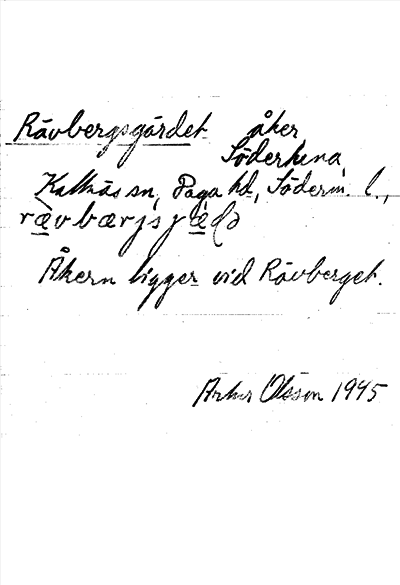 Rävbergsgärdet åker
Södertuna,
Kattnäs sn, Daga hd, Söderm. l.,
Åkern ligger vid Rävberget.
Artur Olsson 1945